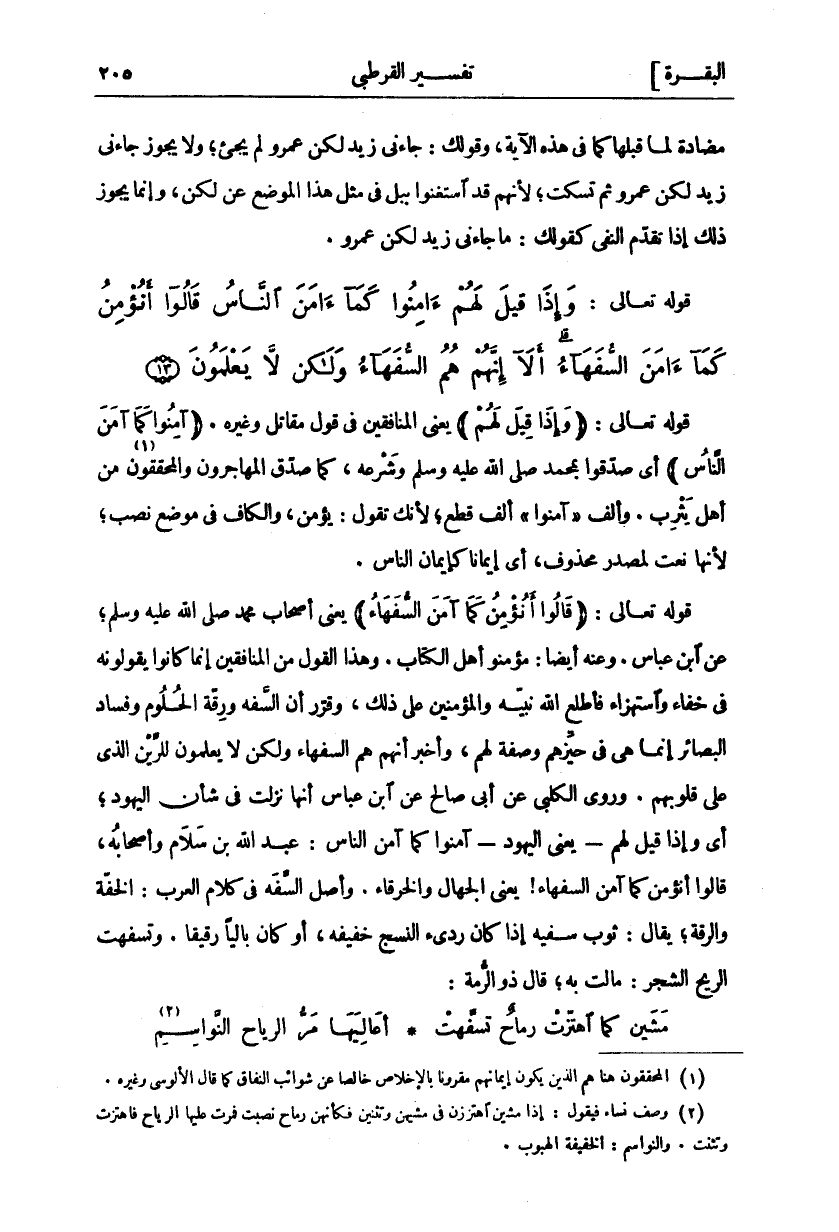 البقـــرة ] تفســـير القرطبى ٢٠٥
مضادة لمـا قبلها كما فى هذه الآية، وقولك : جاءنى زيد لكن عمرو لم يجئ؛ ولا يجوز جاءنى
زيد لكن عمرو ثم تسكت؛ لأنهم قد ٱستغنوا ببل فى مثل هذا الموضع عن لكن، وإنما يجوز
ذلك إذا تقدّم النفى كقولك : ما جاءنى زيد لكن عمرو .
قوله تعـالى : وَإِذَا قِيلَ لَهُمْ ءَامِنُوا كَمَآ ءَامَنَ ٱلنَّـاسُ قَالُوٓا أَنُؤْمِنُ
كَمَآ ءَامَنَ السُّفَهَآءُ ۗ أَلَآ إِنَّهُمْ هُمُ السُّفَهَآءُ وَلَـٰكِن لَّا يَعْلَمُونَ ﴿١٣﴾
قوله تعـالى : ﴿ وَإِذَا قِيلَ لَهُمْ ﴾ يعنى المنافقين فى قول مقاتل وغيره . ﴿ آمِنُوا كَمَا آمَنَ
النَّاسُ ﴾ أى صدّقوا بمحمد صلى الله عليه وسلم وشَرْعه ، كما صدّق المهاجرون والمحققون (١) من
أهل يَثْرِب . وألف «آمنوا» ألف قطع؛ لأنك تقول : يؤمن، والكاف فى موضع نصب؛
لأنها نعت لمصدر محذوف، أى إيمانا كإيمان الناس .
قوله تعـالى : ﴿ قَالُوا أَنُؤْمِنُ كَمَا آمَنَ السُّفَهَاءُ ﴾ يعنى أصحاب محمد صلى الله عليه وسلم؛
عن ٱبن عباس . وعنه أيضا : مؤمنو أهل الكتاب . وهذا القول من المنافقين إنما كانوا يقولونه
فى خفاء وٱستهزاء فأطلع الله نبيّـه والمؤمنين على ذلك ، وقرّر أن السَّفه ورِقّة الحُـلُوم وفساد
البصائر إنمـا هى فى حيّزهم وصفة لهم ، وأخبر أنهم هم السفهاء ولكن لا يعلمون للرَّيْن الذى
على قلوبهم . وروى الكلبى عن أبى صالح عن ٱبن عباس أنها نزلت فى شأن اليهود؛
أى وإذا قيل لهم — يعنى اليهود — آمنوا كما آمن الناس : عبـد الله بن سَلَام وأصحابُه،
قالوا أنؤمن كما آمن السفهاء! يعنى الجهال والخرقاء . وأصل السَّفَه فى كلام العرب : الخفّة
والرقة؛ يقال : ثوب سـفيه إذا كان ردىء النسج خفيفه، أو كان بالياً رقيقا . وتسفهت
الريح الشجر : مالت به؛ قال ذو الرُّمة :
مَشَين كما ٱهتزّتْ رماحٌ تسفّهتْ * أعالِيَهـا مَرُّ الرياح النَّواسِـمِ (٢)
(١) المحققون هنا هم الذين يكون إيمانهم مقرونا بالإخلاص خالصا عن شوائب النفاق كما قال الألوسى وغيره .
(٢) وصف نساء فيقول : إذا مشين ٱهتززن فى مشيهن وتثنين فكأنهن رماح نصبت فمرت عليها الرياح فاهتزت
وتثنت . والنواسم : الخفيفة الهبوب .